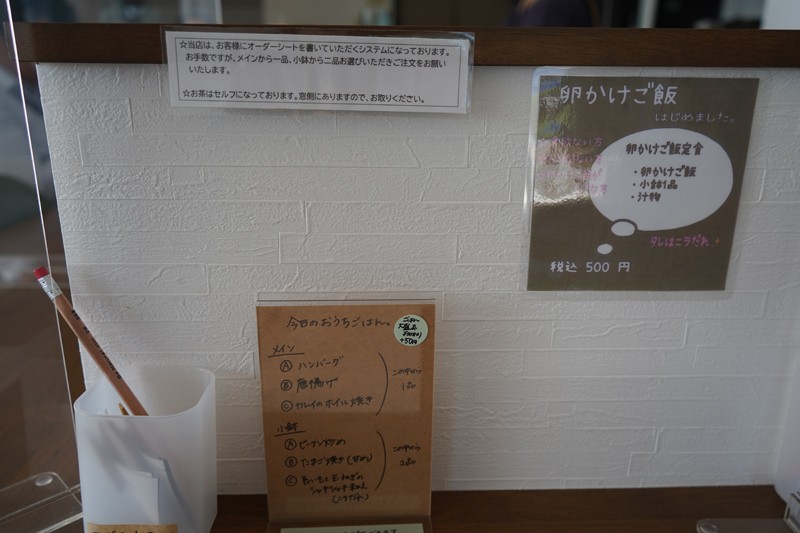 ☆当店は、お客様にオーダーシートを書いていただくシステムになっております。
お手数ですが、メインから一品、小鉢から二品お選びいただきご注文をお願い
いたします。
☆お茶はセルフになっております。窓側にありますので、お取りください。
卵かけご飯
はじめました。
卵かけご飯定食
・卵かけご飯
・小鉢1品
・汁物
タレはニラだれ。
税込 500 円
今日のおうちごはん。
ごはん
大盛り
+50円
メイン
Ⓐ ハンバーグ
Ⓑ 唐揚げ
Ⓒ カレイのホイル焼き
この中から
1品
小鉢
Ⓐ ピーナツ炒め
Ⓑ たまご焼き(甘め)
Ⓒ 長いもと玉ねぎの
シャキシャキ
(ニラだれ)
この中から
2品